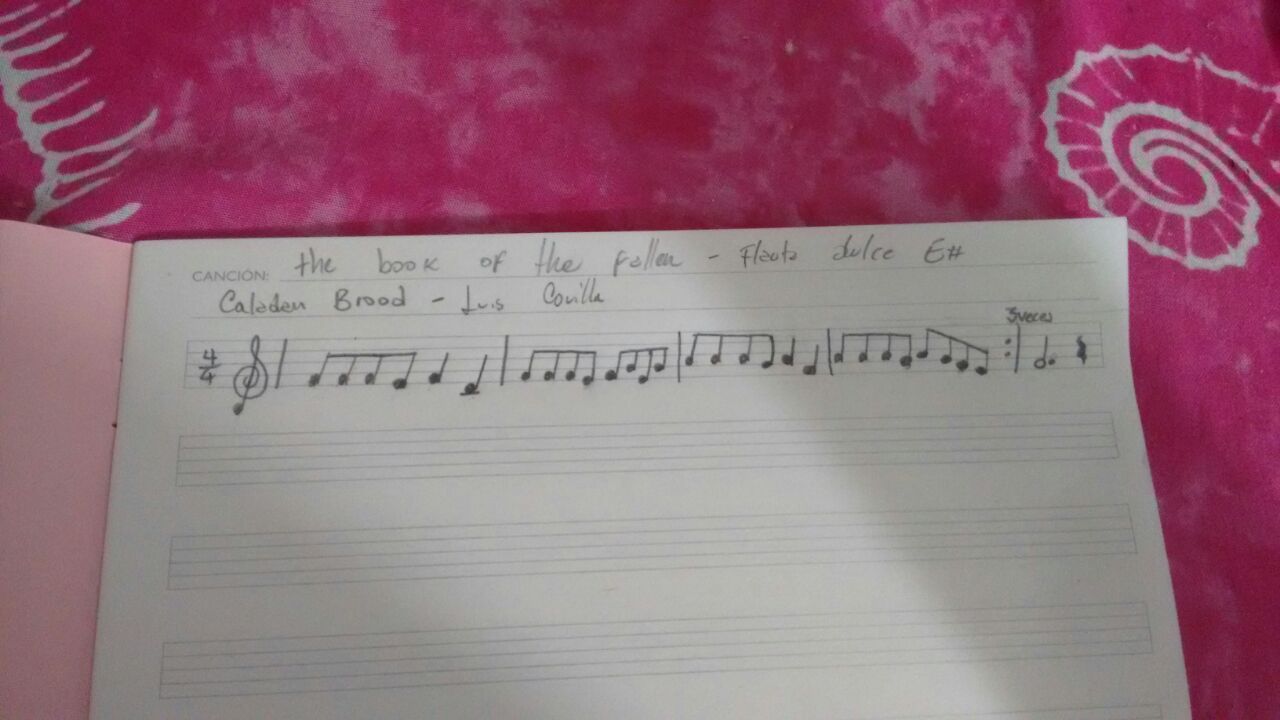 CANCIÓN: the book of the fallen - Flauta dulce E#
Caladan Brood - Luis Covilla
3 veces
4
4